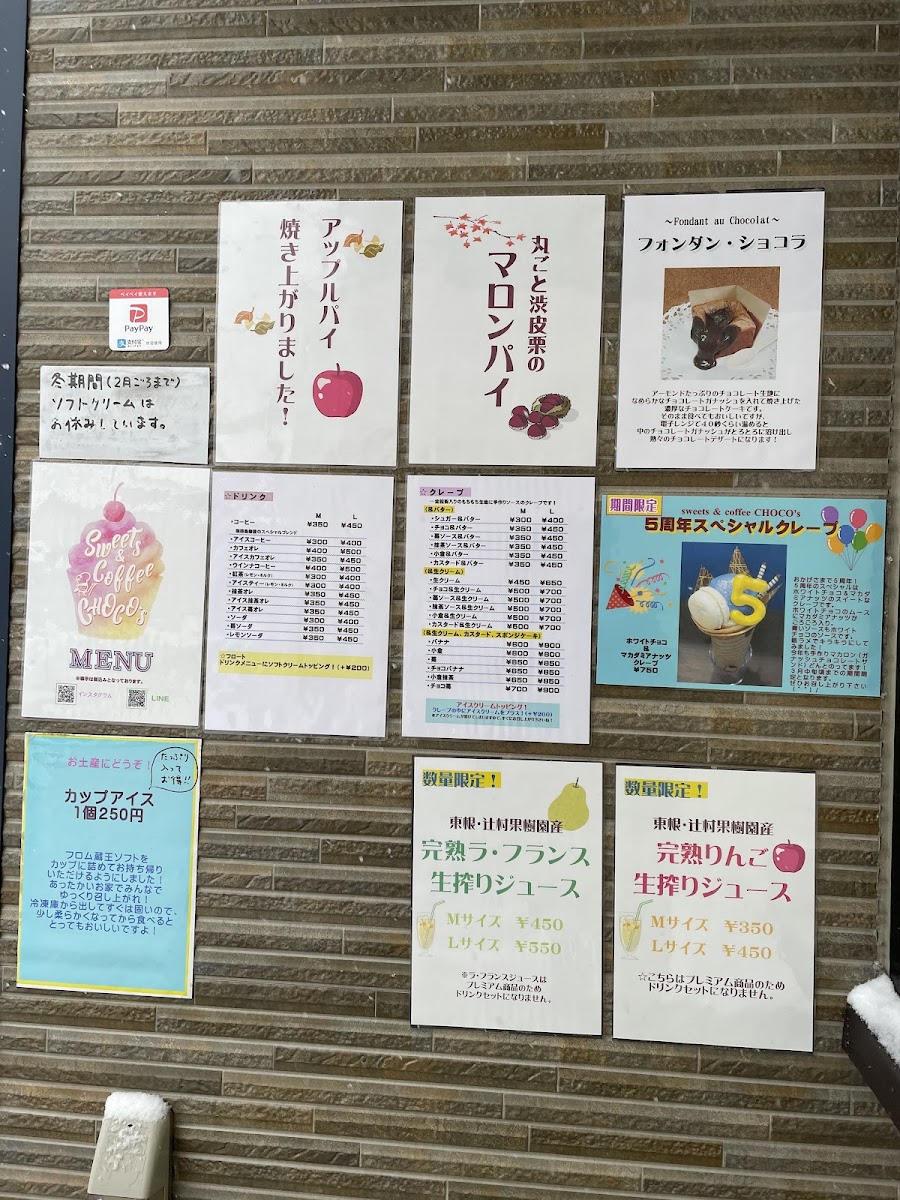 アップルパイ
焼き上がりました！
丸ごと渋皮栗の
マロンパイ
～Fondant au Chocolat～
フォンダン・ショコラ
アーモンドたっぷりのチョコレート生地に
なめらかなチョコレートガナッシュを入れて焼き上げた
濃厚なチョコレートケーキです。
そのまま食べてもおいしいですが、
電子レンジで40秒くらい温めると
中のチョコレートガナッシュがとろとろに溶け出し
熱々のチョコレートデザートになります！
ペイペイ使えます
PayPay
支付宝
冬期間(2月ごろまで)
ソフトクリームは
お休みしています。
Sweets
&
Coffee
CHOCO's
MENU
※表示は税込みとなっております。
インスタグラム
LINE
☆ドリンク
M L
・コーヒー ¥350 ¥450
・アイスコーヒー ¥300 ¥400
・カフェオレ ¥400 ¥500
・アイスカフェオレ ¥350 ¥450
・ウインナコーヒー ¥400 ¥500
・紅茶(レモン・ミルク) ¥300 ¥400
・アイスティー(レモン・ミルク) ¥300 ¥400
・抹茶オレ ¥350 ¥450
・アイス抹茶オレ ¥350 ¥450
・アイス苺オレ ¥350 ¥450
・ソーダ ¥300 ¥400
・レモンソーダ ¥350 ¥450
☆フロート
ドリンクメニューにソフトクリームトッピング！(+¥200)
☆クレープ
(&バター) M L
・シュガー&バター ¥300 ¥400
・チョコ&バター ¥350 ¥450
・苺ソース&バター ¥350 ¥450
・抹茶ソース&バター ¥350 ¥450
・小倉&バター ¥350 ¥450
・カスタード&バター ¥350 ¥450
(&生クリーム)
・生クリーム ¥450 ¥650
・チョコ&生クリーム ¥500 ¥700
・苺ソース&生クリーム ¥500 ¥700
・抹茶ソース&生クリーム ¥500 ¥700
・小倉&生クリーム ¥500 ¥700
・カスタード&生クリーム ¥500 ¥700
(&生クリーム、カスタード、スポンジケーキ)
・バナナ ¥600 ¥800
・小倉 ¥600 ¥800
・苺 ¥650 ¥850
・チョコバナナ ¥650 ¥850
・小倉抹茶 ¥650 ¥850
・チョコ苺 ¥700 ¥900
アイスクリームトッピング！
クレープの中にアイスクリームをプラス！(+¥200)
期間限定
sweets & coffee CHOCO's
5周年スペシャルクレープ
5
ホワイトチョコ
&
マカダミアナッツ
クレープ
¥750
おかげさまで5周年！
5周年のスペシャルは
ホワイトチョコ&マカダ
ミアナッツのスイートな
クレープです。
ホワイトチョコのムース
お土産にどうぞ！
たっぷり
入って
お得!!
カップアイス
1個250円
フロム蔵王ソフトを
カップに詰めてお持ち帰り
いただけるようにしました！
あったかいお家でみんなで
ゆっくり召し上がれ！
冷凍庫から出してすぐは固いので、
少し柔らかくなってから食べると
とってもおいしいですよ！
数量限定！
東根・辻村果樹園産
完熟ラ・フランス
生搾りジュース
Mサイズ ¥450
Lサイズ ¥550
※ラ・フランスジュースは
プレミアム商品のため
ドリンクセットになりません。
数量限定！
東根・辻村果樹園産
完熟りんご
生搾りジュース
Mサイズ ¥350
Lサイズ ¥450
☆こちらはプレミアム商品のため
ドリンクセットになりません。